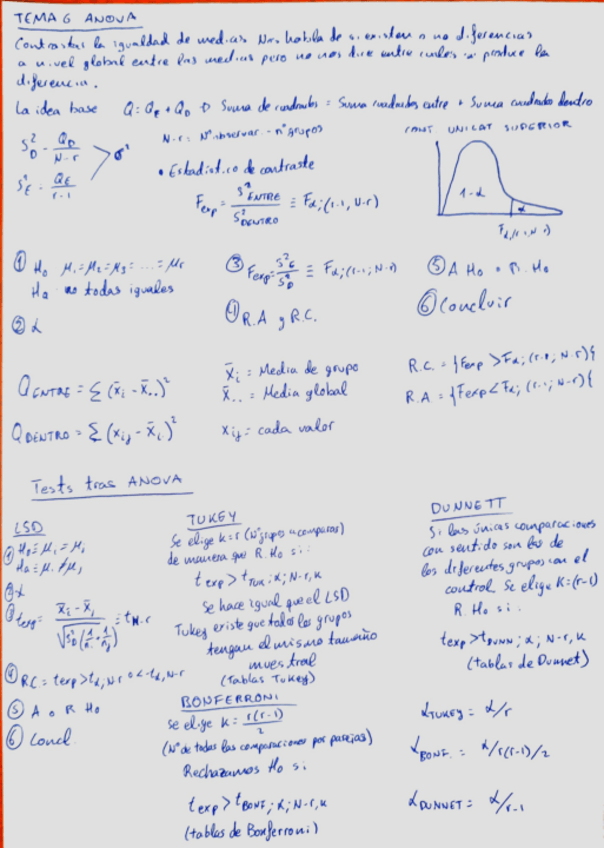 TEMA 6 ANOVA
Contrastar la igualdad de medias. Nos habla de si existen o no diferencias
a nivel global entre las medias pero no nos dice entre cuales se produce la
diferencia.
La idea base Q = Q_E + Q_D → Suma de cuadrados = Suma cuadrados entre + Suma cuadrado dentro
S²_D = Q_D / N-r
S²_E = Q_E / r-1
σ²
N-r = Nº observar. - nº grupos
• Estadístico de contraste
F_exp = S²_ENTRE / S²_DENTRO ≡ F_α;(r-1, N-r)
CONT. UNILAT SUPERIOR
1-α
α
F_α,(r-1, N-r)
① H₀ μ₁=μ₂=μ₃=...=μ_r
Ha no todas iguales
② α
③ F_exp = S²_E / S²_D ≡ F_α;(r-1; N-r)
④ R.A y R.C.
⑤ A H₀ o R. H₀
⑥ Concluir
Q_ENTRE = Σ (x̄_i - x̄..)²
Q_DENTRO = Σ (x_ij - x̄_i.)²
x̄_i = Media de grupo
x̄.. = Media global
x_ij = cada valor
R.C. = {F_exp > F_α; (r-1, N-r)}
R.A = {F_exp < F_α; (r-1; N-r)}
Tests tras ANOVA
LSD
① H₀ ≡ μ_i = μ_j
Ha ≡ μ_i ≠ μ_j
② α
③ t_exp = x̄_i - x̄_j / √S²_D (1/n_i + 1/n_j) ≡ t_N-r
④ R.C = t_exp > t_α,N-r o < -t_α,N-r
⑤ A o R H₀
⑥ Concl.
TUKEY
Se elige k=r (Nº grupo a comparar)
de manera que R. H₀ si:
t_exp > t_TUK; α; N-r, k
Se hace igual que el LSD
Tukey existe que todos los grupos
tengan el mismo tamaño
muestral
(Tablas Tukey)
BONFERRONI
Se elige k = r(r-1)/2
(Nº de todas las comparaciones por parejas)
Rechazamos H₀ si
t_exp > t_BONF; α; N-r, k
(tablas de Bonferroni)
DUNNETT
Si las únicas comparaciones
con sentido son las de
los diferentes grupos con el
control. Se elige K=(r-1)
R. H₀ si:
t_exp > t_DUNN; α; N-r, k
(tablas de Dunnet)
α_TUKEY = α/r
α_BONF. = α/r(r-1)/2
α_DUNNET = α/r-1